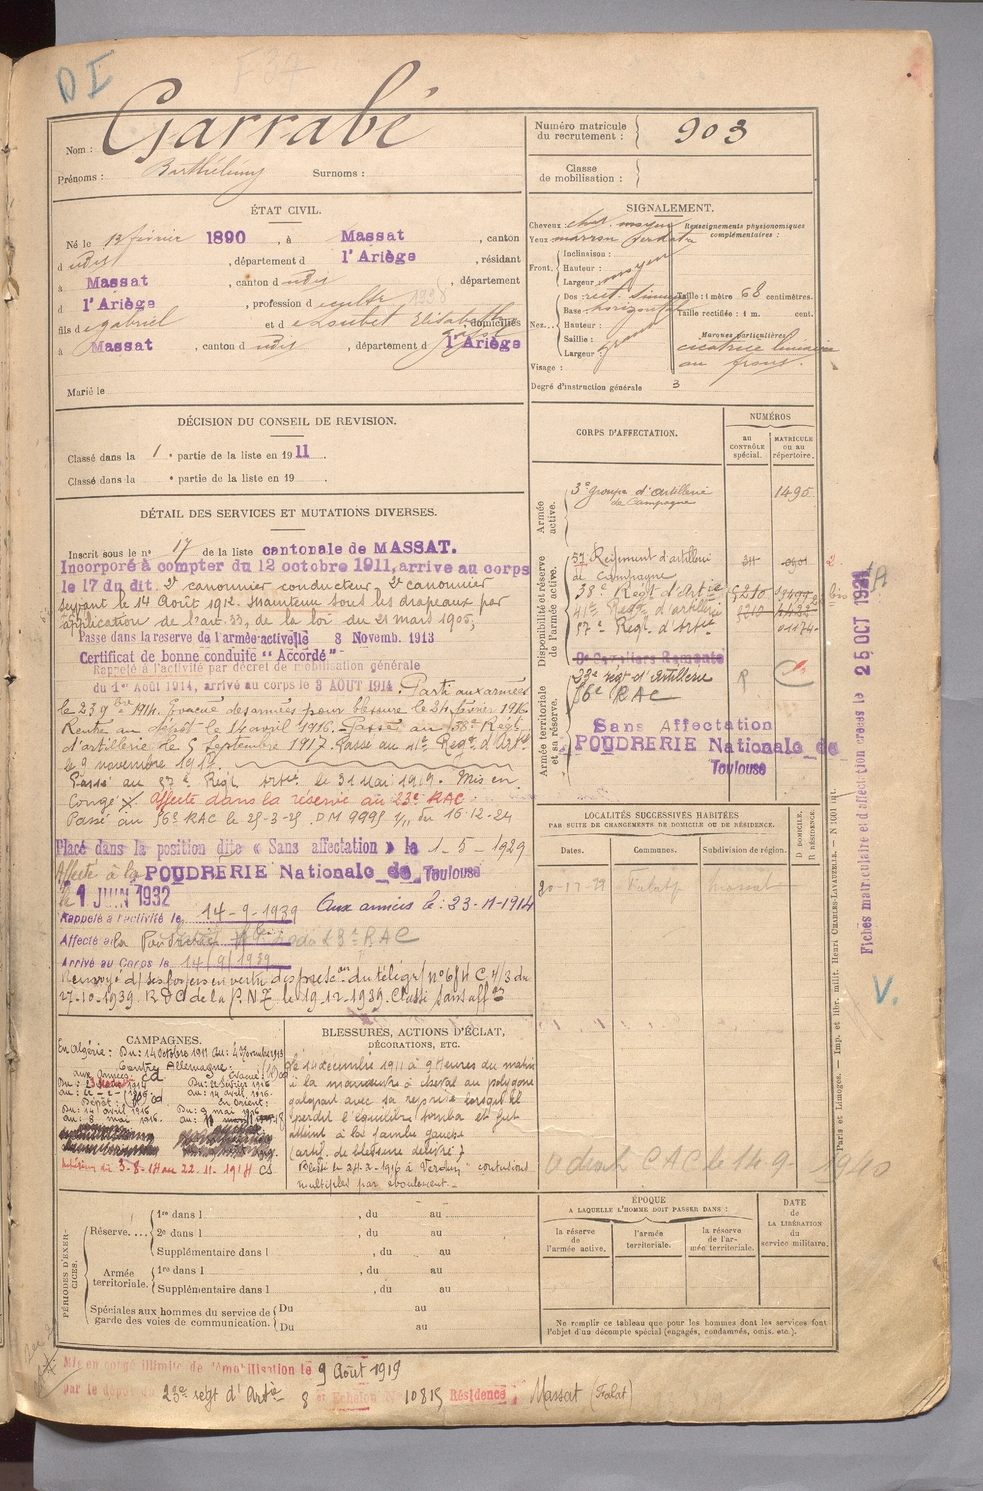 D I
F 37
Nom : Garrabé
Prénoms : Barthélemy Surnoms :
Numéro matricule du recrutement : 903
Classe de mobilisation :
ÉTAT CIVIL.
Né le 12 février 1890, à Massat, canton
d udit, département d l'Ariège, résidant
à Massat, canton d udit, département
d l'Ariège, profession d e cultr
fils d e Gabriel et d e Loubet Elisabeth, domiciliés
à Massat, canton d udit, département d l'Ariège
Marié le
SIGNALEMENT.
Cheveux chat. moyen
Yeux marron
Front. Inclinaison :
Hauteur : moyen
Largeur :
Nez. Dos : rect. sinueux
Base horizontal
Hauteur :
Saillie :
Largeur :
Visage :
Degré d'instruction générale 3
Renseignements physionomiques complémentaires :
Taille : 1 mètre 68 centimètres.
Taille rectifiée : 1 m. cent.
Marques particulières
cicatrice
au front.
DÉCISION DU CONSEIL DE REVISION.
Classé dans la 1e partie de la liste en 1911
Classé dans la e partie de la liste en 19
CORPS D'AFFECTATION.
NUMÉROS
au CONTRÔLE spécial.
MATRICULE ou au répertoire.
Armée active.
3e groupe d'artillerie de Campagne 1495
Disponibilité et réserve de l'armée active.
57 Régiment d'artillerie
de Campagne
38e Regt d'Artie 5210
41e Regt d'artillerie 5210
87e Regt d'Artie 01174
Armée territoriale et sa réserve.
23e regt d'artillerie R
56e RAC
Sans Affectation
POUDRERIE Nationale de
Toulouse
DÉTAIL DES SERVICES ET MUTATIONS DIVERSES.
Inscrit sous le no 17 de la liste cantonale de MASSAT.
Incorporé à compter du 12 octobre 1911, arrive au corps
le 17 du dit. 2e canonnier conducteur, 2e canonnier
servant le 14 Août 1912. Maintenu sous les drapeaux par
application de l'art. 33, de la loi du 21 mars 1905,
Passé dans la reserve de l'armée active le 8 Novemb. 1913
Certificat de bonne conduite "Accordé"
Rappelé à l'activité par décret de mobilisation générale
du 1er Août 1914, arrivé au corps le 3 AOUT 1914. Parti aux armées
le 23 9bre 1914. Evacué des armées pour blessure le 24 février 1916
Rentré au dépôt le 14 avril 1916. Passé au 38e Regt
d'artillerie le 5 Septembre 1917. Passé au 41e Regt d'Artie
le 9 novembre 1917.
Passé au 87e Regt Artie le 31 Mai 1919. Mis en
Congé X. Affecté dans la réserve au 23e RAC.
Passé au 56e RAC le 25-3-25. DM 9995 1/11 du 16-12-24
Placé dans la position dite « Sans affectation » le 1-5-1929
Affecté à la POUDRERIE Nationale de Toulouse
le 1 JUIN 1932
Rappelé à l'activité le 14-9-1939 Aux armées le : 23-11-1914
Affecté à la Poudrerie 23e RAC
Arrivé au Corps le 14/9/1939
Renvoyé d/ ses foyers en vertu des presc.ons du télégr/ no 684 C 4/3 du
27-10-1939. RDC de la P.N.T. le 19-12-1939. Classé sans affon
LOCALITÉS SUCCESSIVES HABITÉES
PAR SUITE DE CHANGEMENTS DE DOMICILE OU DE RÉSIDENCE.
Dates. Communes. Subdivision de région. D DOMICILE. R RÉSIDENCE.
CAMPAGNES.
En Algérie : Du : 14 Octobre 1911 Au : 4 Novembre 1913
Contre Allemagne :
aux Armées : cd
En Orient :
Du : 14 avril 1916 Du : 9 mai 1916
au : 8 mai 1916.
Intérieur du 3-8-14 au 22.11.1914 CS
BLESSURES, ACTIONS D'ÉCLAT, DÉCORATIONS, ETC.
le 14 décembre 1911 à 9 heures du matin
à la manœuvre à cheval au polygone
galopant avec sa reprise lorsqu'il
perdit l'équilibre, tomba et fut
atteint à la jambe gauche
(certif. de blessure délivré)
Blessé le 24-2-1916 à Verdun "contusions
multiples par éboulement.
CAC le 14-9-1940
PÉRIODES D'EXERCICES.
Réserve.... 1re dans l , du au
2e dans l , du au
Supplémentaire dans l , du au
Armée territoriale. 1re dans l , du au
Supplémentaire dans l , du au
Spéciales aux hommes du service de garde des voies de communication. Du au
Du au
ÉPOQUE
A LAQUELLE L'HOMME DOIT PASSER DANS :
la réserve de l'armée active.
l'armée territoriale.
la réserve de l'armée territoriale.
DATE de LA LIBÉRATION du service militaire.
Ne remplir ce tableau que pour les hommes dont les services font
l'objet d'un décompte spécial (engagés, condamnés, omis, etc.).
Mis en congé illimité de démobilisation le 9 Août 1919
par le dépôt du 23e regt d'Artie 8e Echelon No 10815 Résidence Massat (Fralat)
Fiches matriculaire et d'affectation créées le 25 OCT 1921
V.
Paris et Limoges. — Imp. et libr. milit. Henri CHARLES-LAVAUZELLE. — N° 1001 int.